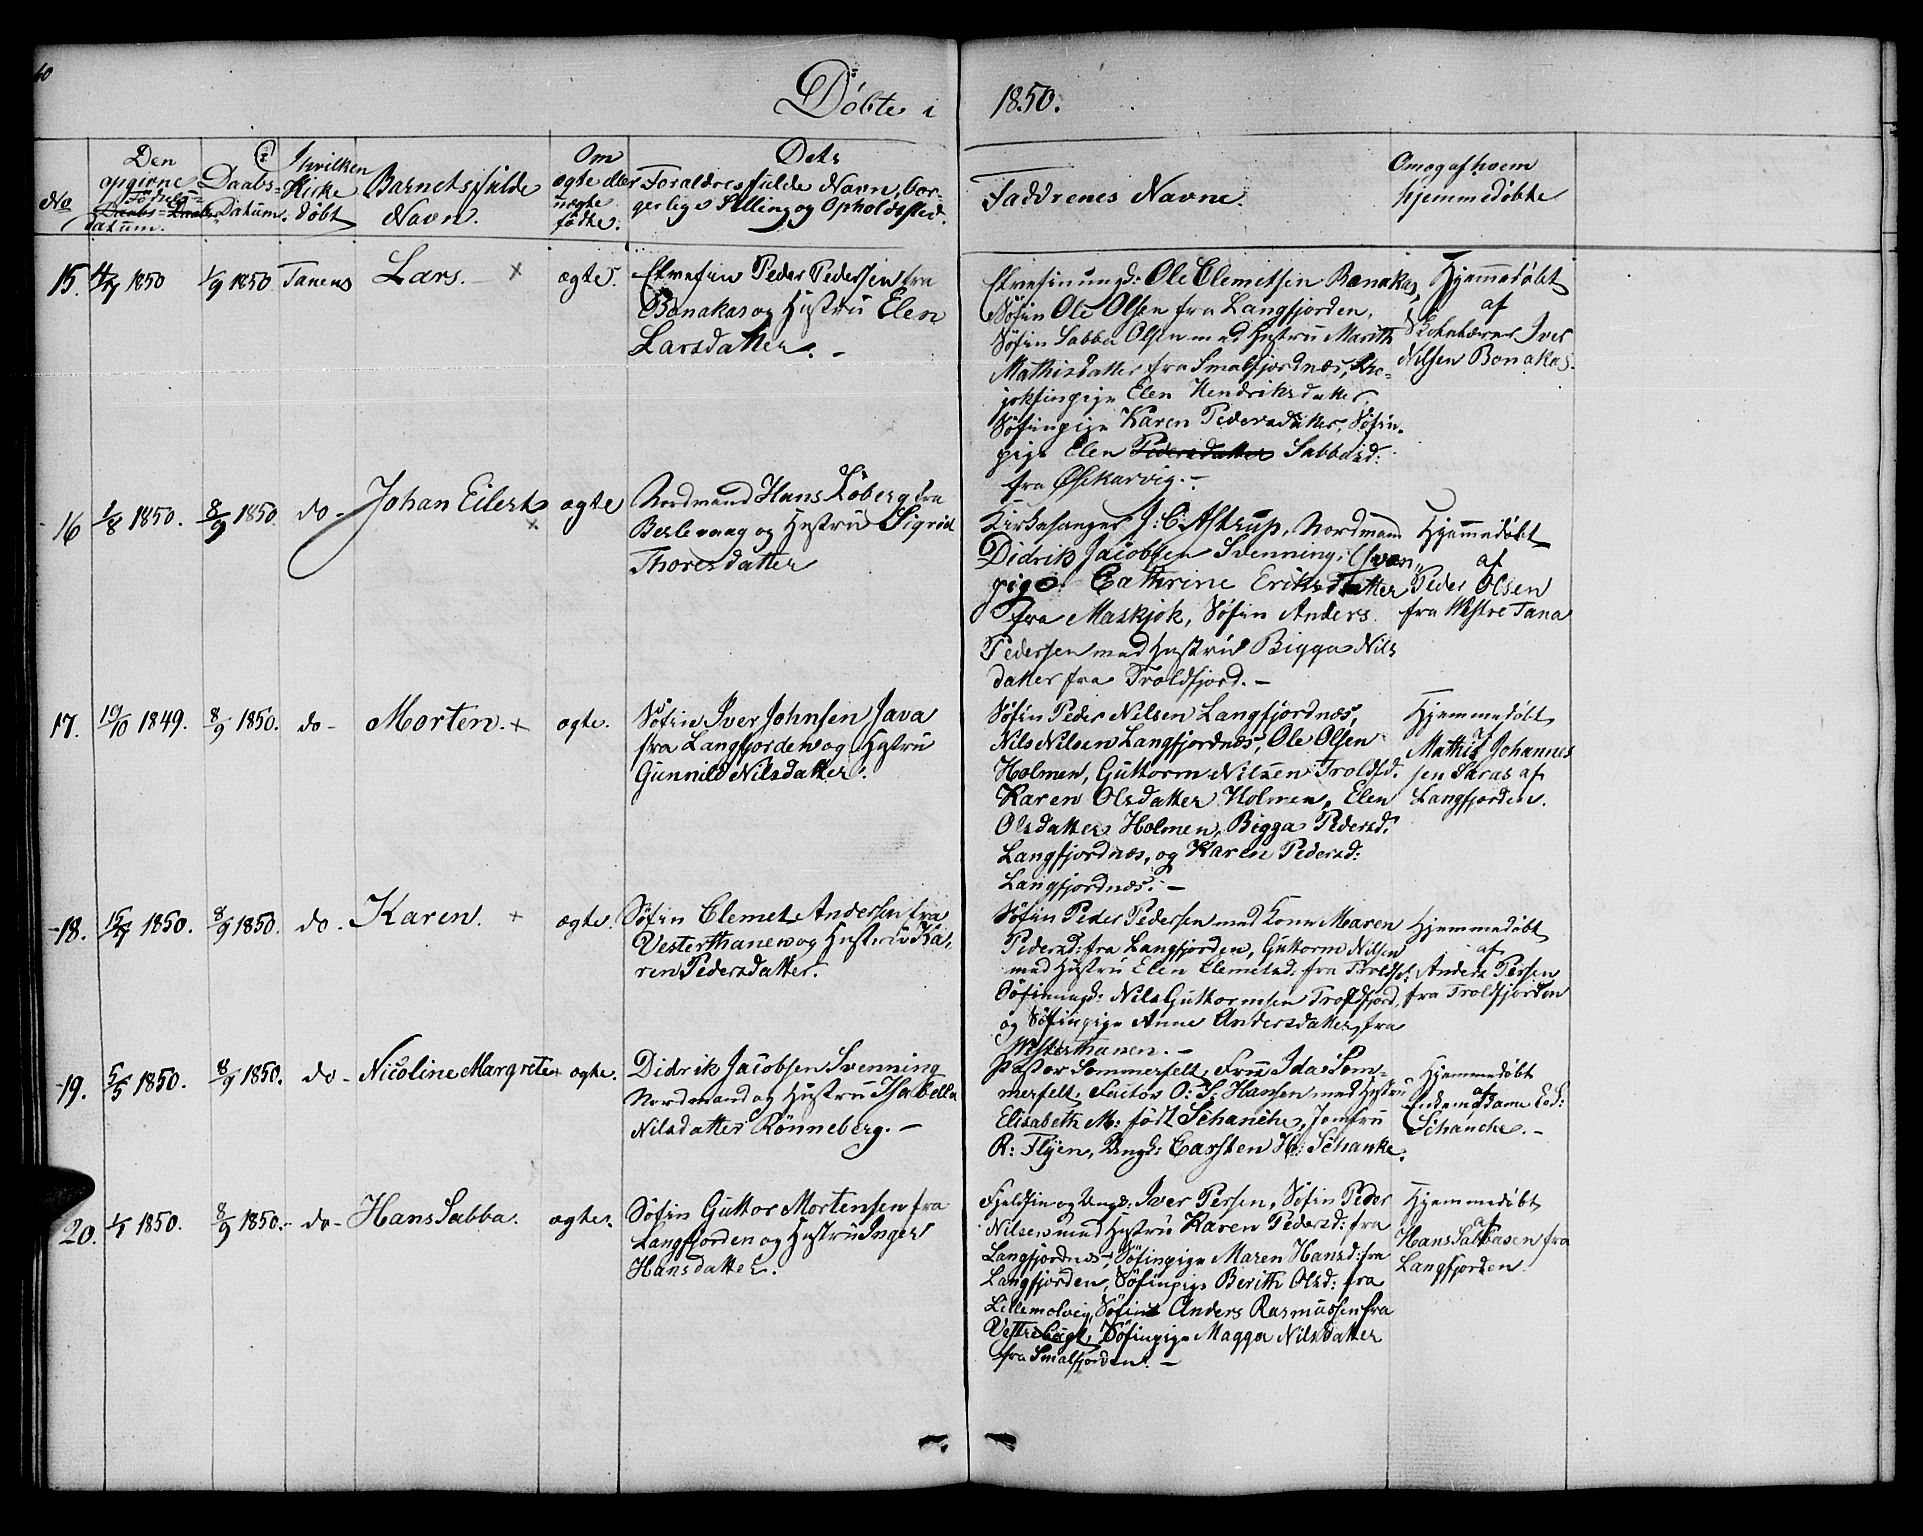 60
Döbte i 1850.
No
Den opgivne Fødsels= Daabs= Daabs= datum.
Daabs= Datum.
I hvilken Kirke døbt
Barnets fulde Navn.
Om ægte eller uægte fødte.
Dets Forældres fulde Navn, borgerlige Stilling og Opholdssted.
Faddrenes Navne.
Om og af hvem hjemmedøbte
15. 4/7 1850 1/9 1850 Tanens Lars. + ægte.
Elvefin Peder Pedersen fra
Bonakas og Hustru Elen
Larsdatter. -
Elvefin ungk: Ole Clemetsen Bonakas,
Söfin Ole Olsen fra Langfjorden,
Söfin Sabba Olsen med Hustru Marith
Mathisdatter fra Smalfjordnæs,
Elen Hendriksdatter,
Söfinpige Karen Pedersdatter, Söfin-
pige Elen Pedersdatter Sabbasd:
fra
Hjemmedøbt
af
Skolelærer Iver
Nilsen Bonakas.
16 1/8 1850. 8/9 1850 do - Johan Eilert + ægte
Nordmand Hans Löberg fra
Berlevaag og Hustru Sigrid
Thoresdatter
Kirkesanger J: C: Astrup, Nordmand
Didrik Jacobsen Svenning, Qvæn-
pige Cathrine Eriksdatter
fra Maskjok, Söfin Anders
Pedersen med Hustru Bigga Nils
datter fra Troldfjord. -
Hjemmedöbt
af
Peder Olsen
fra Westre Tana
17. 19/10 1849. 8/9 1850. do - Morten. + ægte.
Söfin Iver Johnsen Java
fra Langfjorden og Hustru
Gunnild Nilsdatter.
Söfin Peder Nilsen Langfjordnæs,
Nils Nilsen Langfjordnæs, Ole Olsen
Holmen, Guttorm Nilsen Troldfd.
Karen Olsdatter Holmen, Elen
Olsdatter Holmen, Bigga Pedersd.
Langfjordnæs, og Karen Pedersd:
Langfjordnæs. -
Hjemmedøbt
af
Mathis Johannes
sen Saras af
Langfjorden.
18. 15/7 1850. 8/9 1850. do - Karen. + ægte.
Söfin Clemet Andersen fra
Vesterthanen og Hustru Ka-
ren Pedersdatter.
Söfin Peder Pedersen med Kone Maren
Pedersd: fra Langfjorden, Guttorm Nilsen
med Hustru Elen Clemetsd: fra Troldfj:
Söfinungd: Nils Guttormsen Troldfjord,
og Söfinpige Anne Andersdatter, fra
Westerthanen. -
Hjemmedøbt
af
Anders Persen
fra Troldfjorden
19. 5/5 1850. 8/9 1850. do - Nicoline Margrete + ægte.
Didrik Jacobsen Svenning
Nordmand og Hustru Isabella
Nilsdatter Rönneberg. -
Pastor Sommerfelt, Fru Ida Som-
merfelt, Factor O: S: Hansen med Hustru
Elisabeth M: född Schanche, Jomfru
R: Flyen, Ungk: Carsten H: Schanke.
Hjemmedøbt
af
Madame
Schanche. -
20. 1/1 1850. 8/9 1850. - do - Hans Sabba. ægte.
Söfin Guttor Mortensen fra
Langfjorden og Hustru Inger
Hansdatter.
Fjeldfin og Ungk: Iver Persen, Söfin Peder
Nilsen med Hustru Karen Pedersd: fra
Langfjordnæs, Söfinpige Maren Hansd: fra
Langfjorden, Söfinpige Berith Olsd: fra
Lillemolvig, Söfin Anders Rasmussen fra
Vestrebugt, Söfinpige Magga Nilsdatter
fra Smalfjorden. -
Hjemmedøbt
af
Hans Sabbasen fra
Langfjorden.